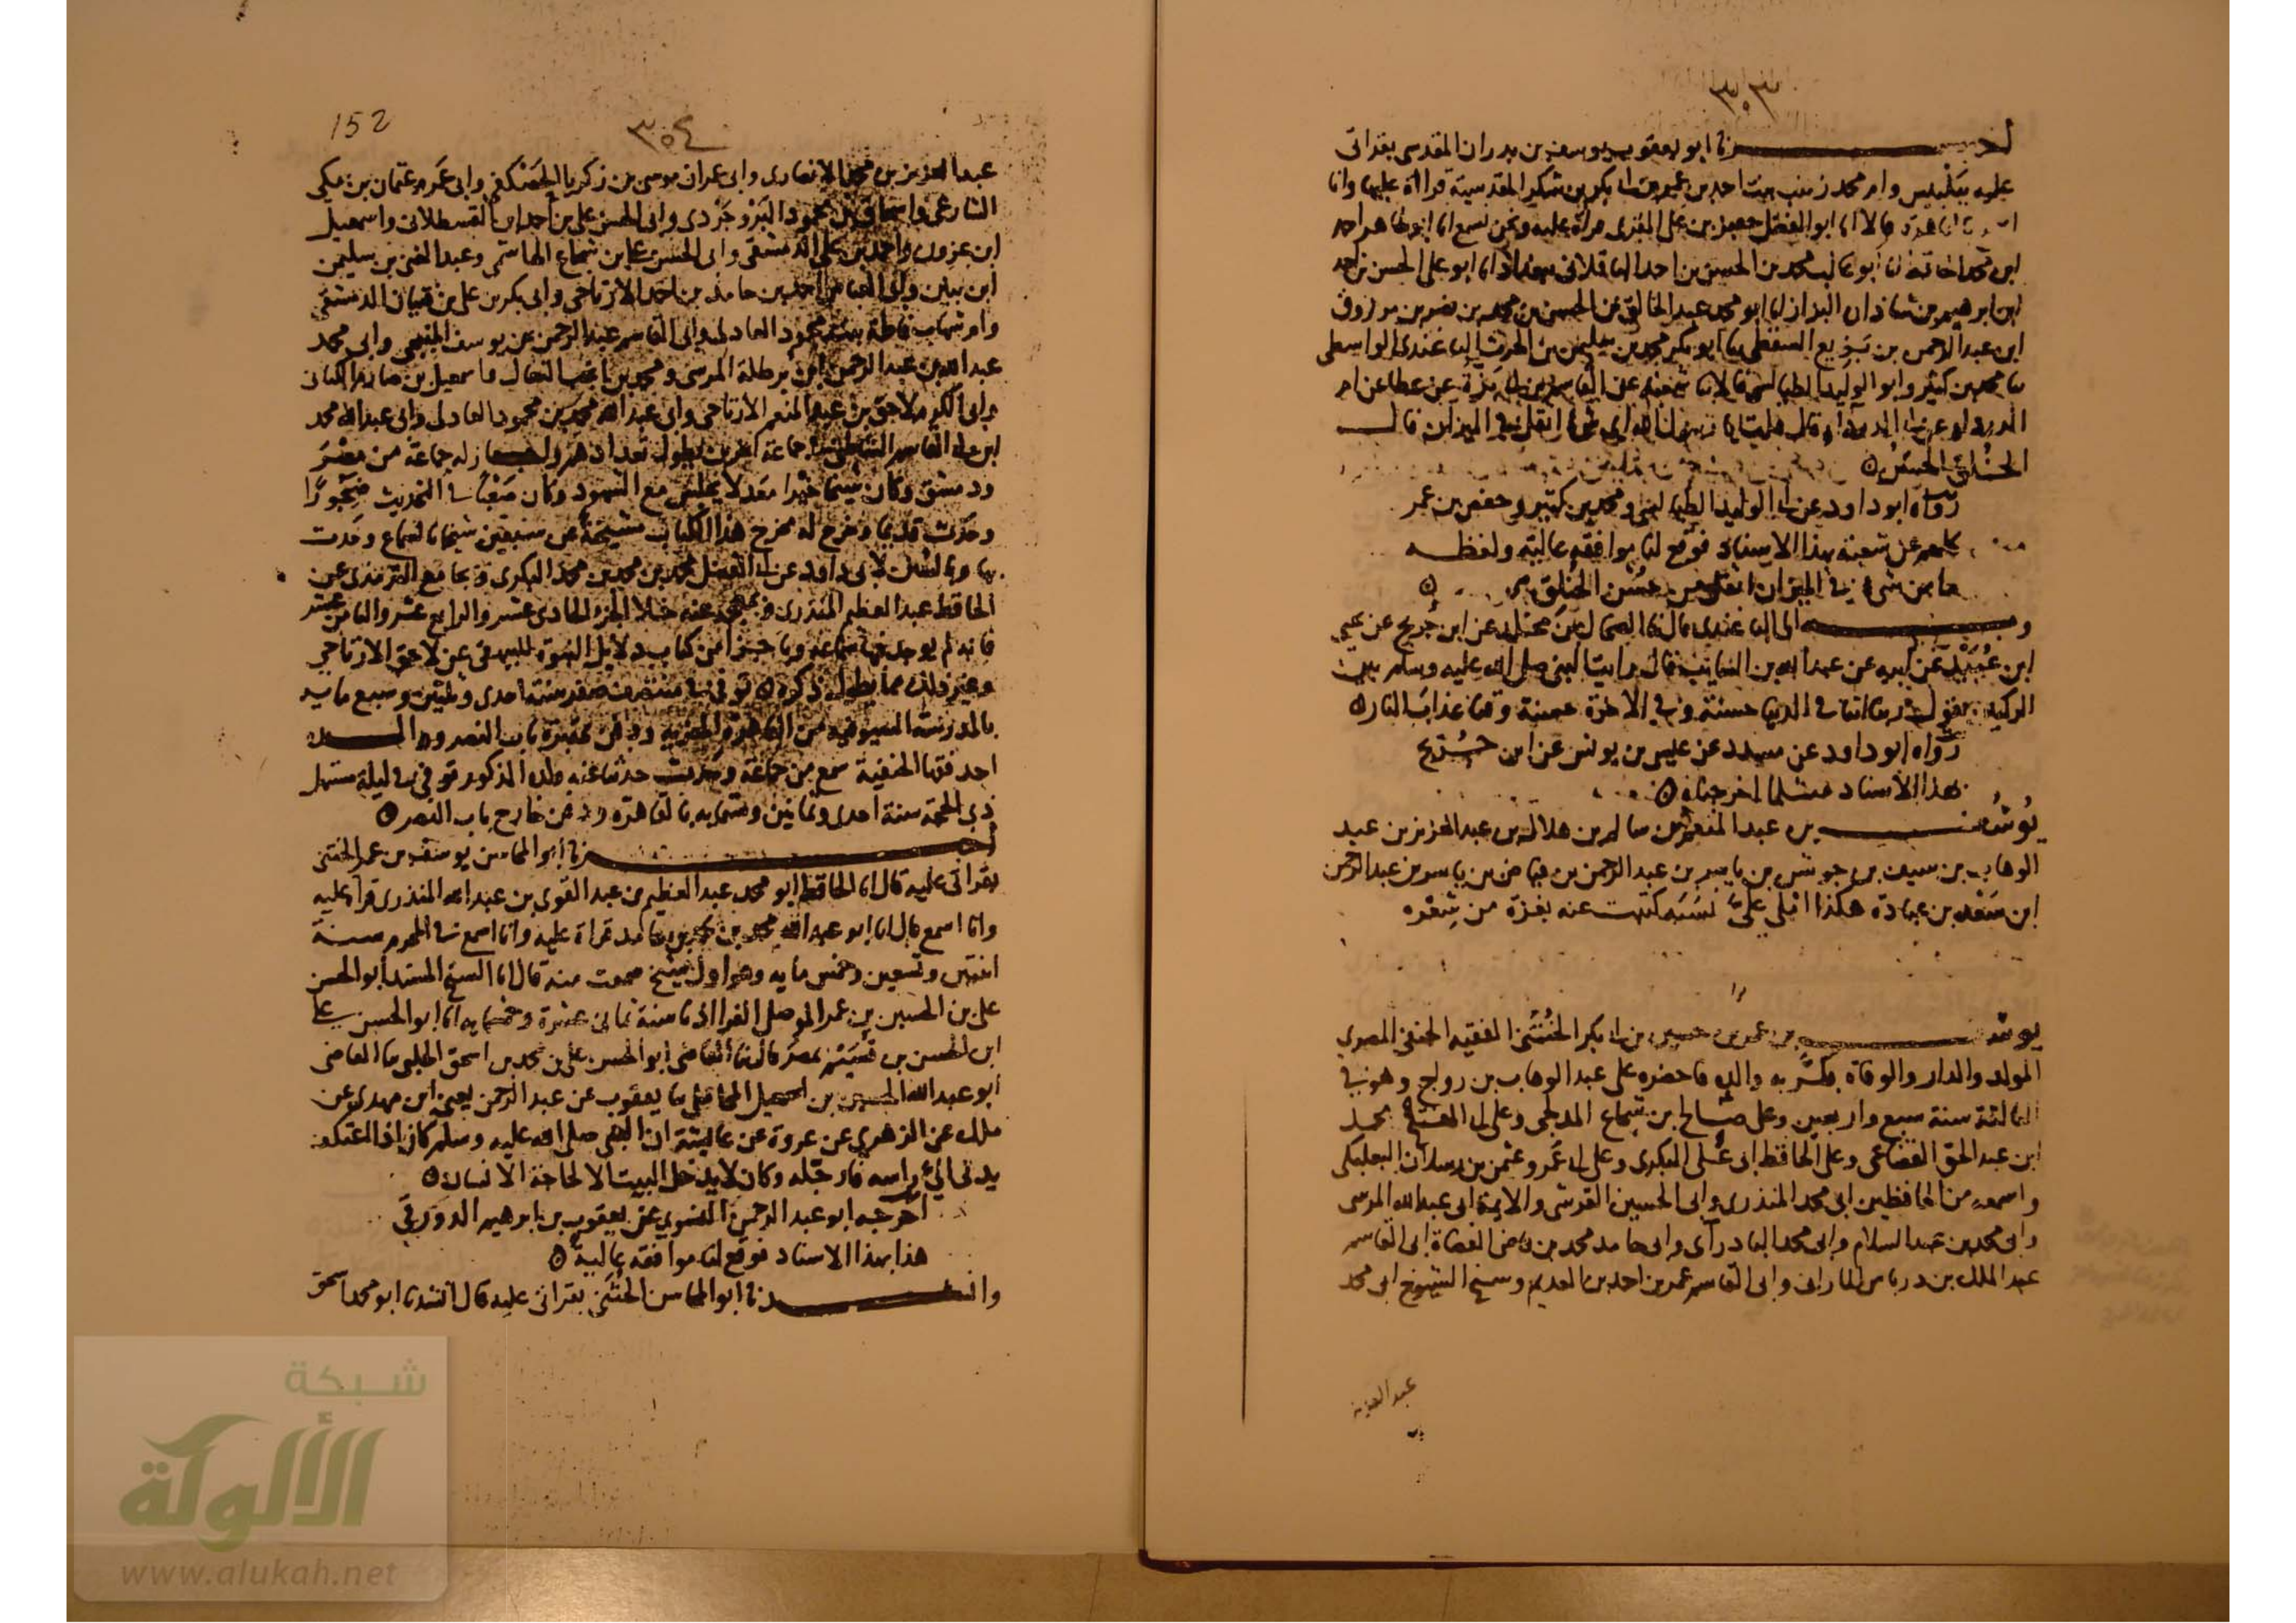 ٣٠٣
أخبرنا ابو يعقوب يوسف بن بدران المقدسى بقراتى
عليه ببلبيس وام محمد زينب بنت احمد بن عمر بن ابى بكر بن شكر المقدسية قراة عليها وانا
اسمع بالقاهرة قالا انا ابو الفضل جعفر بن على المقرى قراة عليه ونحن نسمع انا ابو طاهر احمد
ابن محمد الحافظ انا ابو غالب محمد بن الحسن بن احمد الباقلانى ببغداد انا ابو على الحسن بن احمد
ابن ابرهيم بن شاذان البزاز انا ابو محمد عبد الخالق بن الحسن بن محمد بن نصر بن مرزوق
ابن عبد الرحمن بن بزيع السقطى نا ابو بكر محمد بن سليمن بن الحرث الباغندى الواسطى
نا محمد بن كثير وابو الوليد الطيالسى قالا نا شعبة عن القاسم بن ابى بزة عن عطا عن ام
الدردا عن ابى الدردا قال قلت يا رسول الله اى شى اثقل فى الميزان قال
الخلق الحسن
رواه ابو داود عن ابى الوليد الطيالسى ومحمد بن كثير وحفص بن عمر
كلهم عن شعبة بهذا الاسناد فوقع لنا موافقة عالية ولفظه
ما من شى فى الميزان اثقل من حسن الخلق
وبه الى الباغندى قال نا الضحاك بن مخلد عن ابن جريج عن يحيى
ابن عبيد عن ابيه عن عبد الله بن السايب قال رايت النبى صلى الله عليه وسلم بين
الركنين يقول ربنا اتنا فى الدنيا حسنة وفى الاخرة حسنة وقنا عذاب النار
رواه ابو داود عن مسدد عن عيسى بن يونس عن ابن جريج
بهذا الاسناد مثلما اخرجناه
يوشف بن عبد المنعم بن سالم بن هلالة بن عبد العزيز بن عبد
الوهاب بن سيف بن جوشن بن ياسر بن عبد الرحمن بن فياض بن ياسر بن عبد الرحمن
ابن سعد بن عبادة هكذا املى على نسبه كتبت عنه بغزة من شعره
يوسف بن عمر بن حسين بن ابى بكر الختنى الفقيه الحنفى المصرى
المولد والدار والوفاة بكر به والده فاحضره على عبد الوهاب بن رواج وهو فى
الثالثة سنة سبع واربعين وعلى صالح بن شجاع المدلجى وعلى ابى الفتح محمد
ابن عبد الحق القضاعى وعلى الحافظ ابى على البكرى وعلى ابى عمرو عثمن بن رسلان البعلبكى
واسمعه من الحافظين ابى محمد المنذرى وابى الحسين القرشى والايمة ابى عبد الله المرسى
وابى محمد بن عبد السلام وابى محمد البادرآى وابى حامد محمد بن قاضى القضاة ابى القاسم
عبد الملك بن درباس المارانى وابى القاسم عمر بن احمد بن العديم وشيخ الشيوخ ابى محمد
عبد العزيز
152
٣٠٤
عبد العزيز بن محمد الانصارى وابى عمران موسى بن زكريا الحصكفى وابى عمرو عثمان بن مكى
الشارعى واسحاق بن محمود البروجردى وابى الحسن على بن احمد ابن القسطلانى واسمعيل
ابن عزون واحمد بن على الدمشقى وابى الحسن على بن شجاع الهاشمى وعبد الغنى بن سليمن
ابن بنين وابى القاسم احمد بن حامد بن احمد الارتاحى وابى بكر بن على بن فتيان الدمشقى
وام شهاب فاطمة بنت محمود العادلى وابى القاسم عبد الرحمن بن يوسف المنبجى وابى محمد
عبد الله بن عبد الرحمن ابن برطلة المرسى ومحمد بن النعال واسمعيل بن صارم الكنانى
وابى الكرم لاحق بن عبد المنعم الارتاحى وابى عبد الله محمد بن محمود العادلى وابى عبد الله محمد
ابن ابى القاسم الشاطبى جماعة اخرين يطول تعدادهم واجاز له جماعة من مصر
ودمشق وكان شيخا خيرا معدلا يجلس مع الشهود وكان صعبا فى التحديث ضجورا
وحدث قديما وخرج له مخرج هذا الكتاب مشيخة عن ستين شيخا بالسماع وحدث
بها وبالسنن لابى داود عن ابى الفضل محمد بن محمد بن محمد البكرى وبجامع الترمذى عن
الحافظ عبد العظيم المنذرى عنه خلا الجزو الحادى عشر والرابع عشر والثامن عشر
فانه لم يوجد فيها سماعه وباجزا من كتاب دلايل النبوة للبيهقى عن لاحق الارتاحى
وغير ذلك مما يطول ذكره توفى فى منتصف صفر سنة احدى وثلثين وسبع ماية
بالمدرسة السيوفية من القاهرة المعزية ودفن بمقبرة باب النصر والده
احد فقها الحنفية سمع من جماعة وحدث حدثنا عنه ولده المذكور توفى فى ليلة مستهل
ذى الحجة سنة احدى وثمانين وستماية بالقاهرة ودفن خارج باب النصر
أخبرنا ابو المحاسن يوسف بن عمر الختنى
بقراتى عليه قال انا الحافظ ابو محمد عبد العظيم بن عبد القوى بن عبد الله المنذرى قراة عليه
وانا اسمع قال انا ابو عبد الله محمد بن حمد بن حامد قراة عليه وانا اسمع فى المحرم سنة
اثنتين وتسعين وخمس ماية وهو اول شيخ سمعت منه قال انا الشيخ المسند ابو الحسن
على بن الحسين بن عمر الموصلى الفرا اذنا سنة ثمانى عشرة وخمسماية انا ابو الحسن على
ابن الحسن بن قشيش بمصر قال نا القاضى ابو الحسن على بن محمد بن اسحق الحلبى نا القاضى
ابو عبد الله الحسين بن اسمعيل المحاملى نا يعقوب عن عبد الرحمن يعنى ابن مهدى عن
ملك عن الزهرى عن عروة عن عايشة ان النبى صلى الله عليه وسلم كان اذا اعتكف
يدنى الى راسه فارجله وكان لا يدخل البيت الا لحاجة الانسان
اخرجه ابو عبد الرحمن النسوى عن يعقوب بن ابرهيم الدورقى
هذا بهذا الاسناد فوقع لنا موافقة عالية
وانشدنا ابو المحاسن الختنى بقراتى عليه قال انشدنا ابو محمد اسحق
شبكة
الألوكة
www.alukah.net